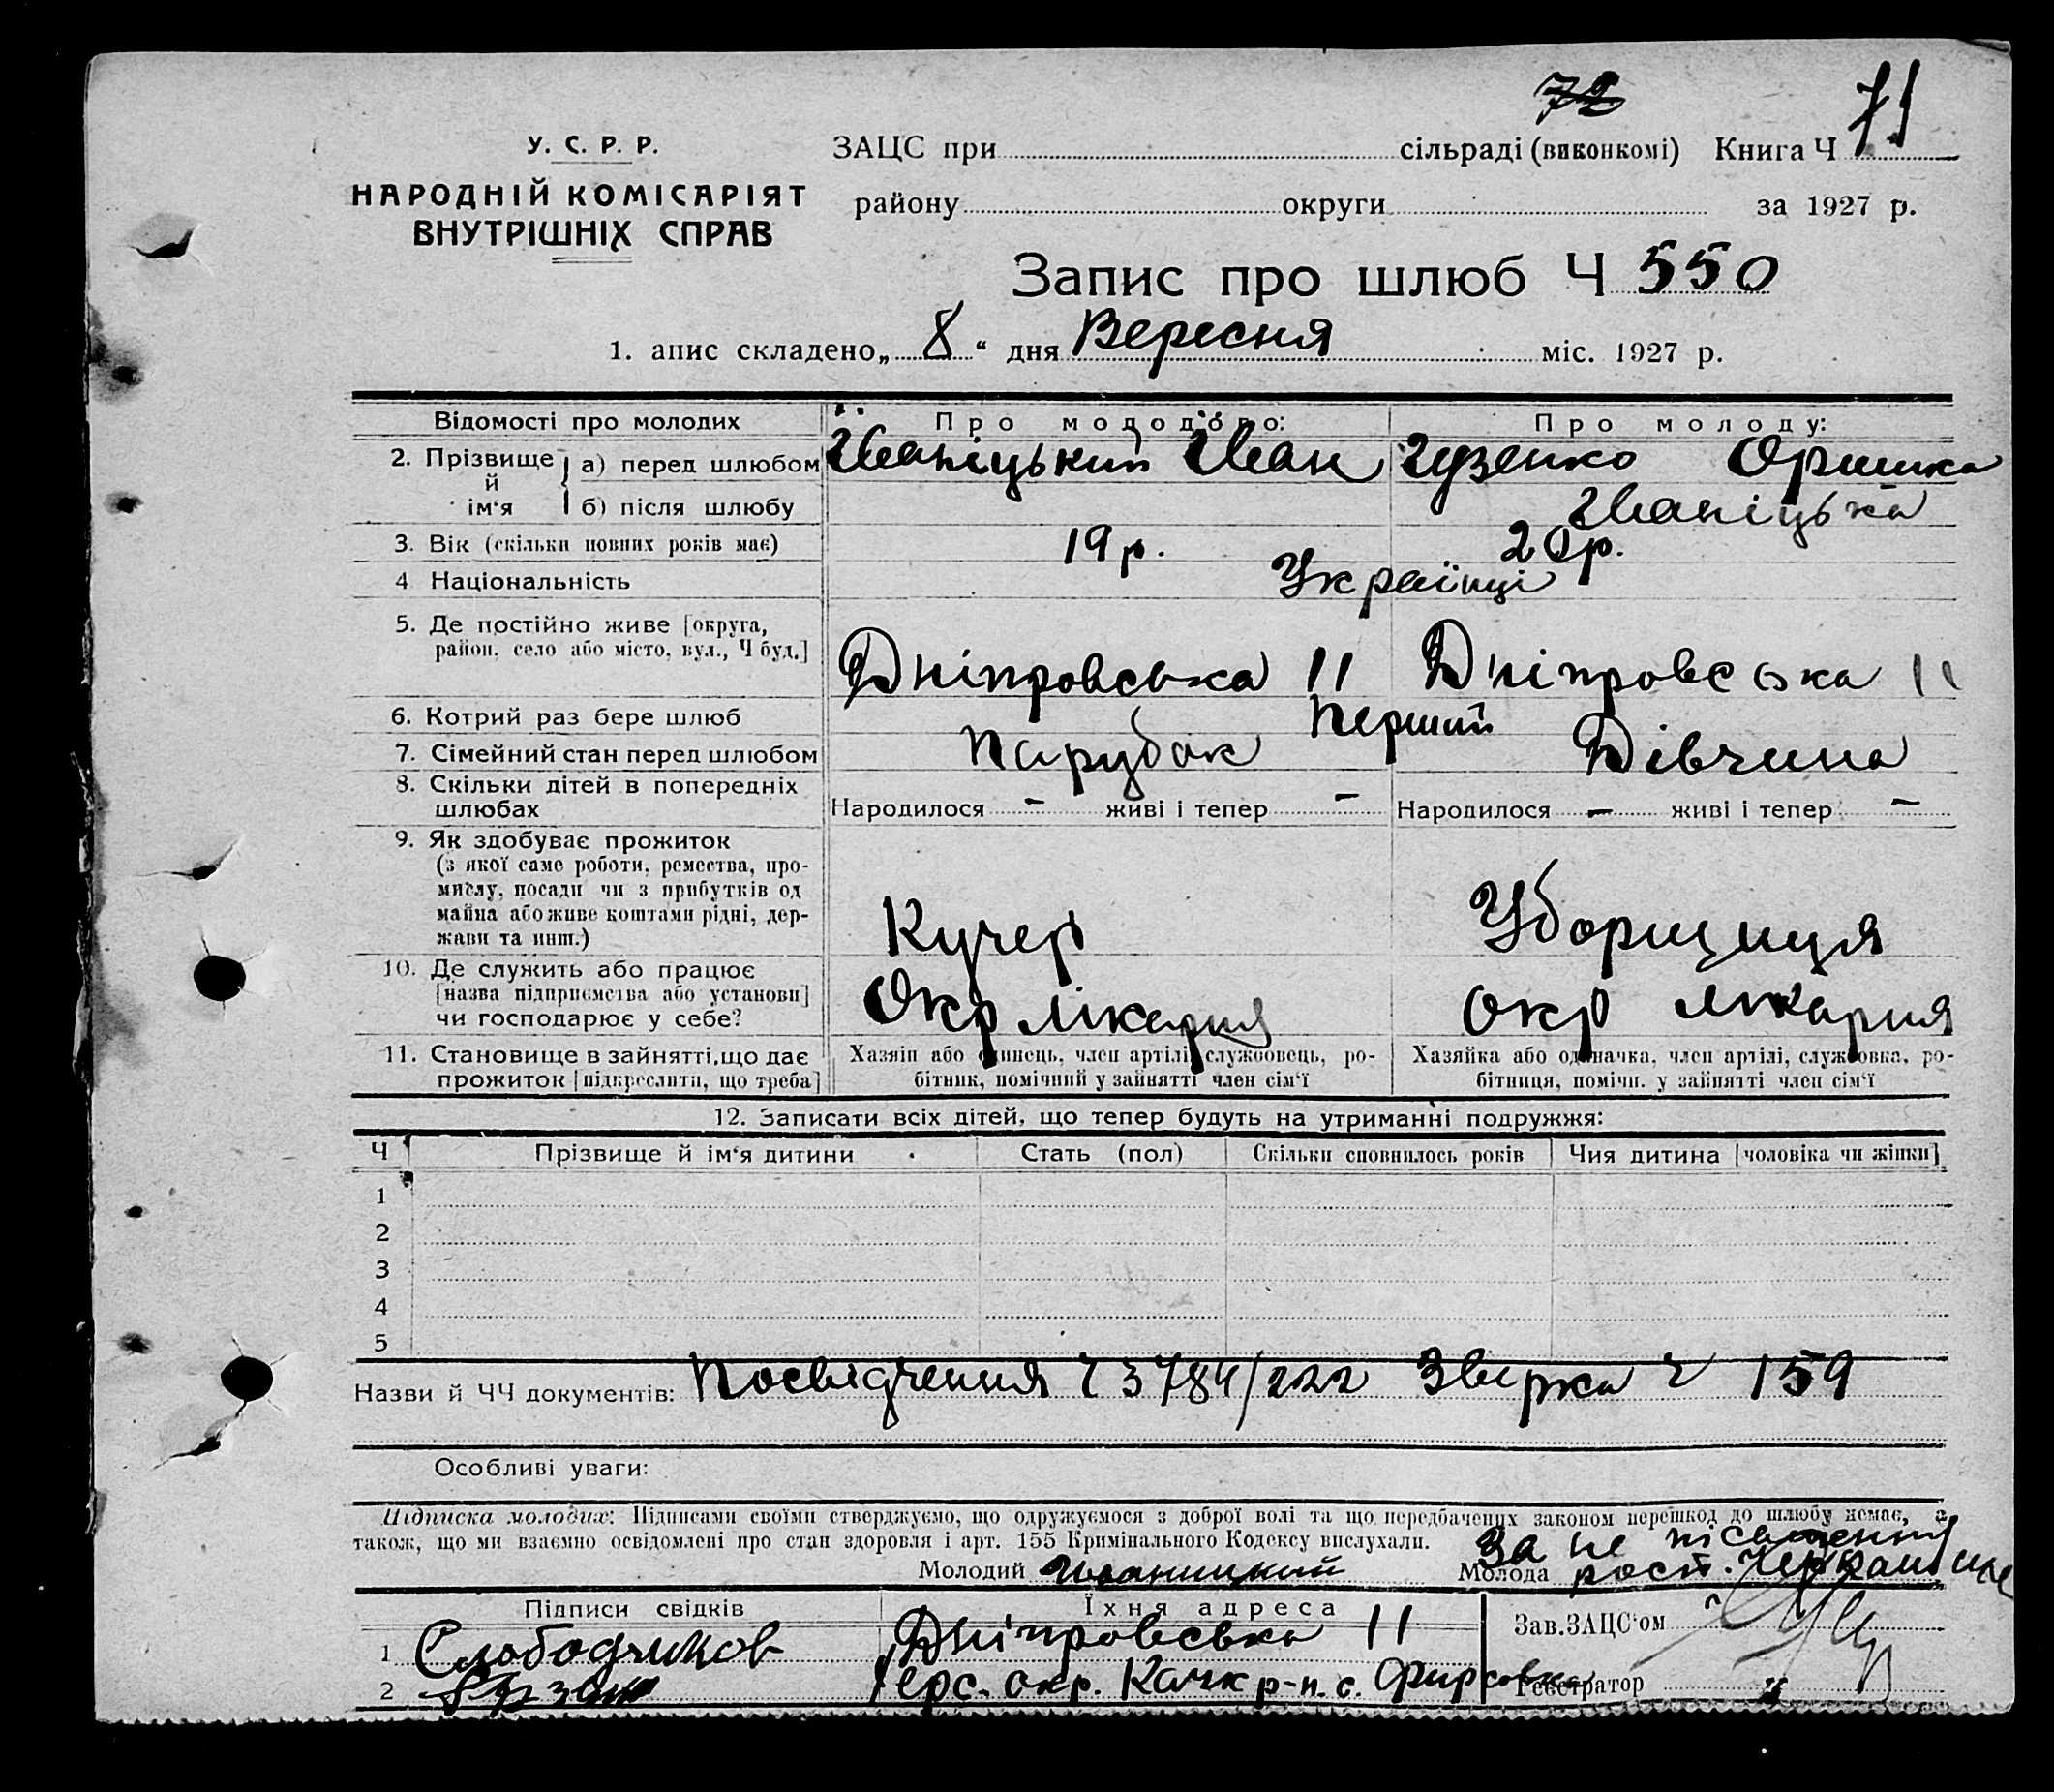 72
У. С. Р. Р.
НАРОДНІЙ КОМІСАРІЯТ
ВНУТРІШНІХ СПРАВ
ЗАЦС при сільраді (виконкомі) Книга Ч 71
району округи за 1927 р.
Запис про шлюб Ч 550
1. апис складено „8“ дня Вересня міс. 1927 р.
Відомості про молодих Про молодого: Про молоду:
2. Прізвище й ім'я а) перед шлюбом Іваніцький Іван Гузенко Оришка
б) після шлюбу Іваніцька
3. Вік (скільки повних років має) 19 р. 20 р.
4 Національність Українці
5. Де постійно живе [округа,
район, село або місто, вул., Ч буд.] Дніпровська 11 Дніпровська 11
6. Котрий раз бере шлюб Перший
7. Сімейний стан перед шлюбом Парубок Дівчина
8. Скільки дітей в попередніх
шлюбах Народилося - живі і тепер - Народилося - живі і тепер -
9. Як здобуває прожиток
(з якої саме роботи, ремества, про-
мислу, посади чи з прибутків од
майна або живе коштами рідні, дер-
жави та инш.) Кучер Уборщиця
10. Де служить або працює
[назва підприємства або установи]
чи господарює у себе? Окр лікарня Окр лікарня
11. Становище в зайнятті, що дає
прожиток [підкреслити, що треба]
Хазяїн або одинець, член артілі, службовець, ро-
бітник, помічний у зайнятті член сім'ї
Хазяйка або одиначка, член артілі, службовка, ро-
бітниця, помічн. у зайнятті член сім'ї
12. Записати всіх дітей, що тепер будуть на утриманні подружжя:
Ч Прізвище й ім'я дитини Стать (пол) Скільки сповнилось років Чия дитина [чоловіка чи жінки]
1
2
3
4
5
Назви й ЧЧ документів: Посвідчення Ч 3784/222 Звірка Ч 159
Особливі уваги:
Підписка молодих: Підписами своїми стверджуємо, що одружуємося з доброї волі та що передбачених законом перешкод до шлюбу немає, а
також, що ми взаємно освідомлені про стан здоровля і арт. 155 Кримінального Кодексу вислухали.
За не пісьменну
Молодий Иваницкий Молода рост.
Підписи свідків Їхня адреса
1 Слободчиков Дніпровська 11
2 Херс. окр. Качкр-н. с. Фирсовка
Зав. ЗАЦС'ом
Реєстратор